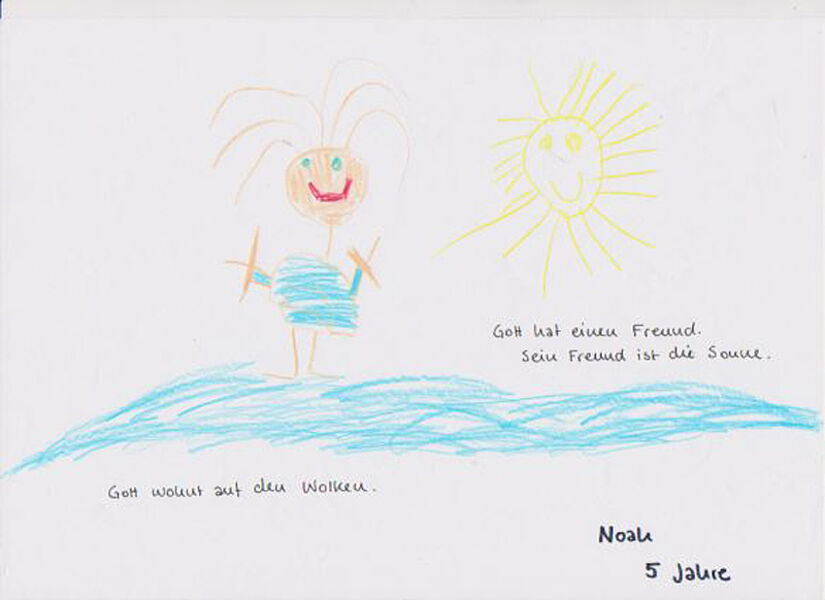 Gott hat einen Freund.
Sein Freund ist die Sonne.
Gott wohnt auf den Wolken.
Noah
5 Jahre